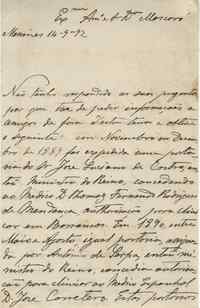 Ex.mo Am.o e Dr. Moscoró
Monsões 14-9-92
Não tenho respondido as suas perguntas
por que tive de pedir informações a
amigos de fóra d'esta terra e obtive
o seguinte: em Novembro ou Dezem
bro de 1889 foi expedida uma porta
ria do Sr. José Luciano de Castro, en
tão Ministro do Reino, concedendo
ao Medico D. Thomaz Fernandes Rodrigues
de Mendonça authorisação para clini
car em Barrancos. Em 1890, entre
Maio e Agosto igual portaria, assigna
da por Antonio de Serpa, então mi
nistro do Reino, concedia autorisa
ção para clinicar ao Medico Espanhol
D. José Carretero. Estas portarias